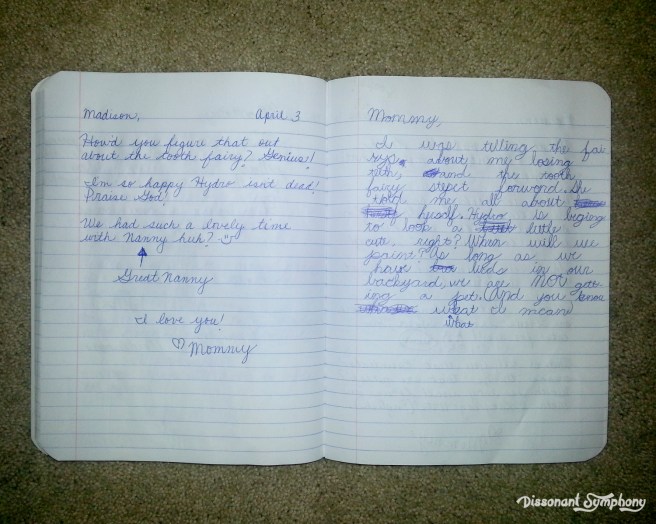 Madison, April 3
How'd you figure that out
about the tooth fairy? Genius!
I'm so happy Hydro isn't dead!
Praise God!
We had such a lovely time
with Nanny huh?
Great Nanny
I love you!
♡ Mommy
Mommy,
I was tilling the fai
rys about me losing
tith, and the tooth
fairy stept forward. She
told me all about
herself. Hydro is bigin
to look a little
cute, right? When will we
paint? As long as we
have in our
backyard, we are NOT gett-
ing a pet. And you know
what I mean
what
Dissonant Symphony